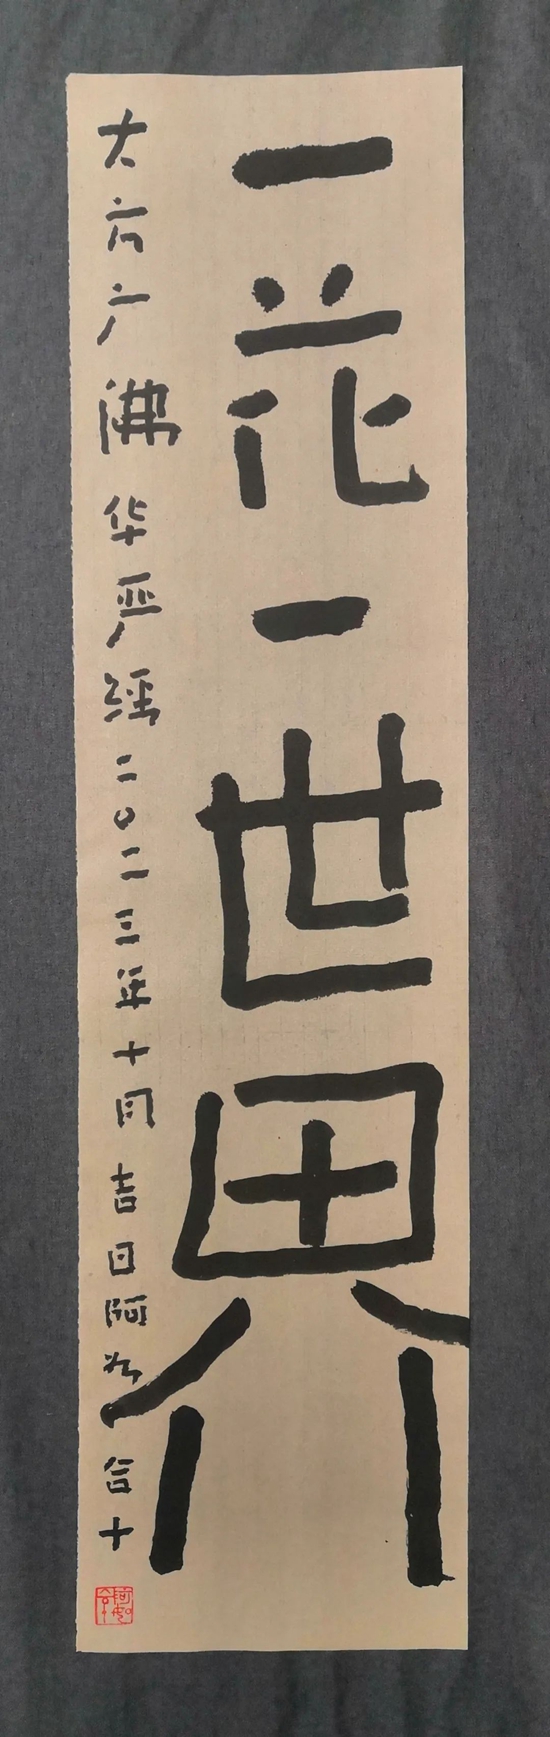 一花一世界
大方广佛华严经二〇二三年十月吉日阿合十